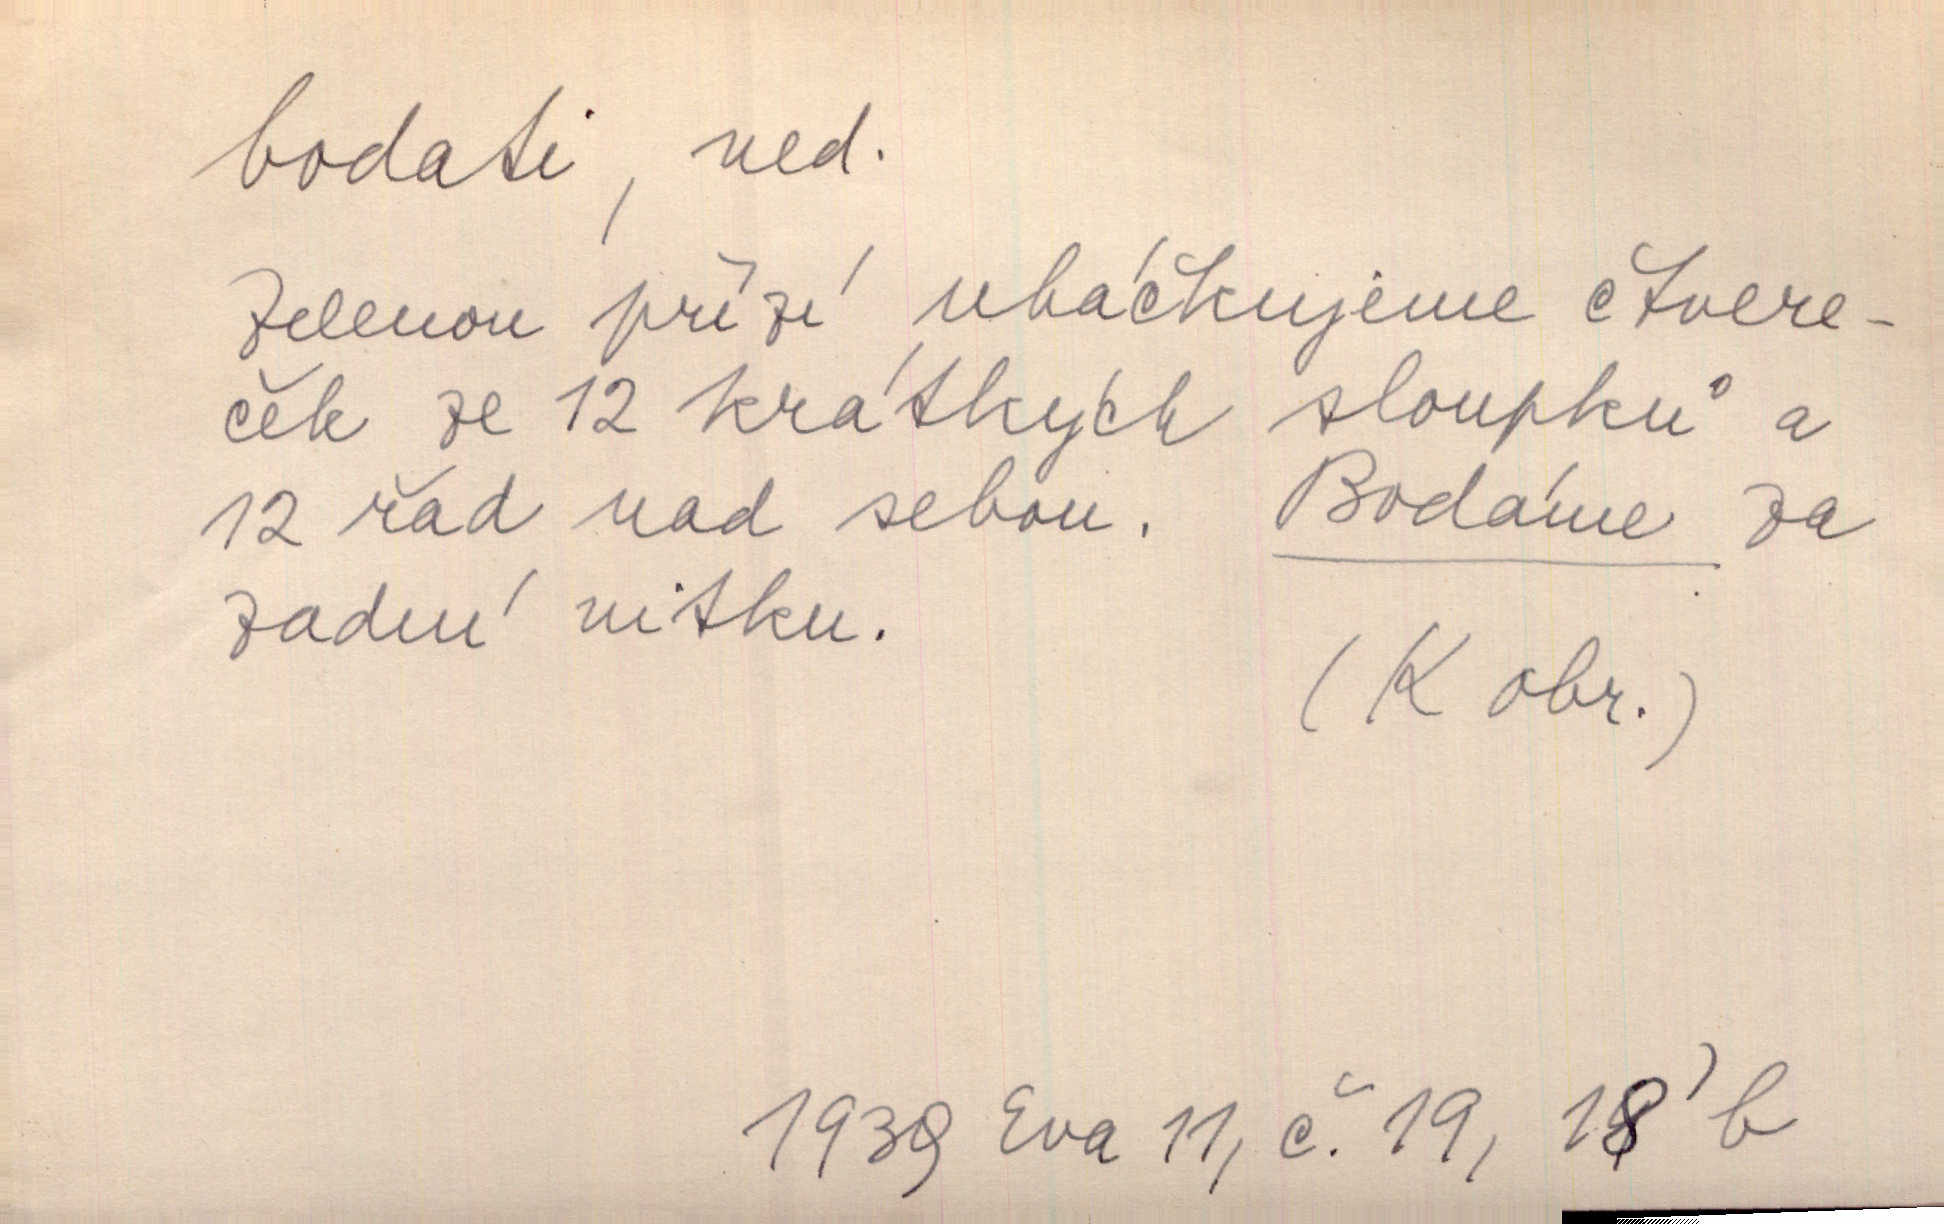 bodati, ned.
Zelenou přízí uháčkujeme čtvere-
ček ze 12 krátkých sloupků a
12 řad nad sebou. Bodáme za
zadní nitku.
(K obr.)
1939 Eva 11, č. 19, 18' b